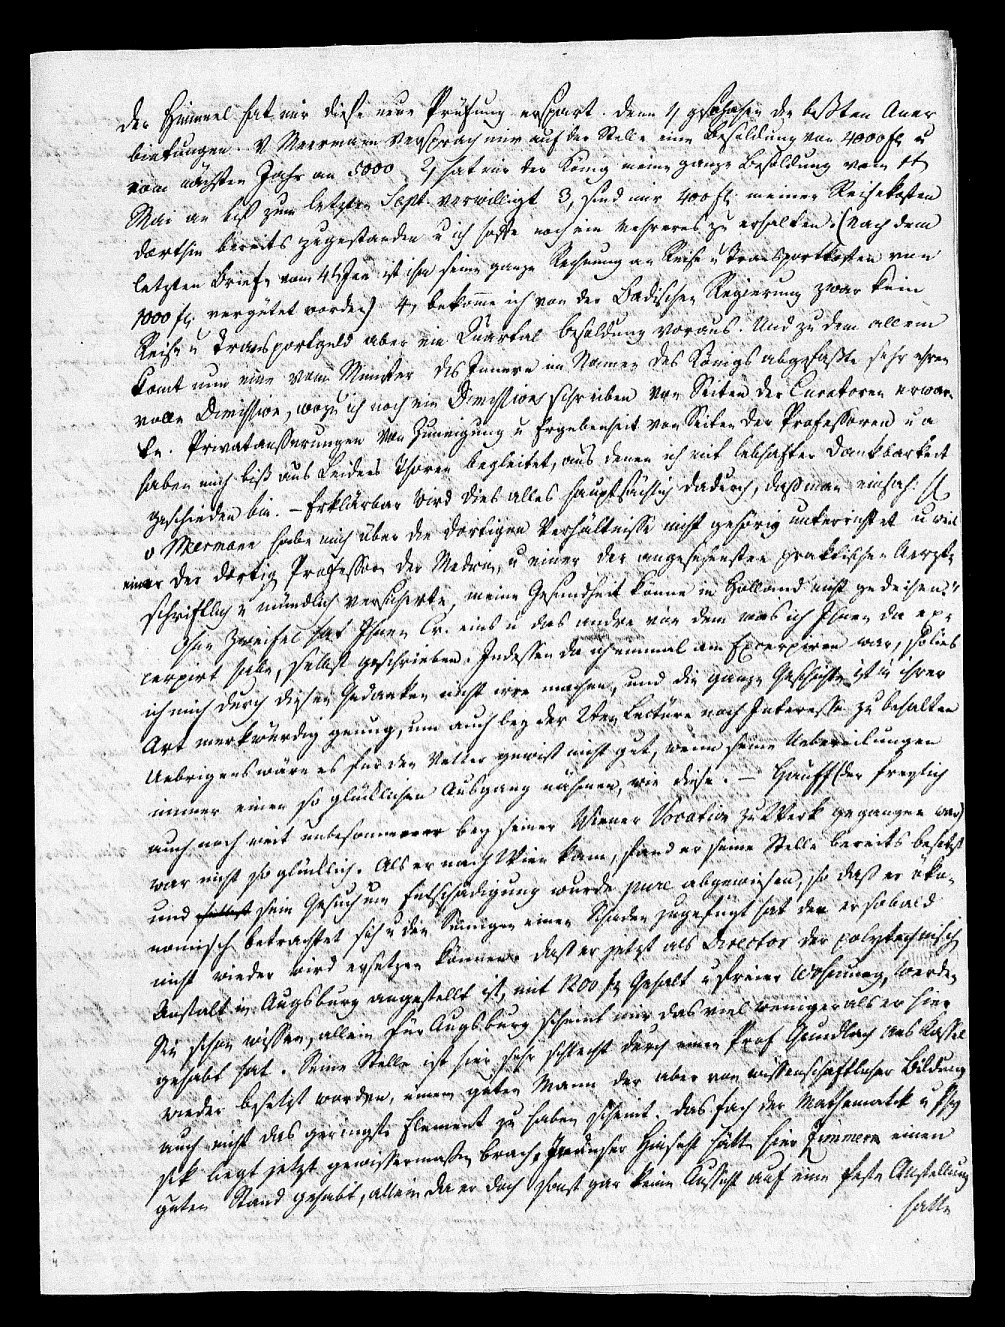 der Himmel hat mir diese neue Prüfung erspart. denn 1, geschahen die beßten Aner
bietungen. v Meermann versprach mir auf der Stelle eine Besoldung von 4000 fl u
vom nächsten Jahr an 5000 2, hat mir der König meine ganze Besoldung vom
Mai an biß zum letzten Sept. verwilligt 3, sind mir 400 fl meiner Reisekosten
dorthin bereits zugestanden u ich hoffe noch ein mehreres zu erhalten. (Nach dem
letzten Brief vom 4t Jan ist ihm seine ganze Rechnung an Reise u Transportkosten von
1000 fl vergütet worden) 4, bekomme ich von der Badischen Regierung zwar kein
Reise u Transportgeld aber ein Quartal Besoldung voraus. Und zu dem allem
komt nun eine vom Minister des Innern im Namen des Königs abgefaßte sehr ehren
volle Dimission, wozu ich noch ein Dimissions schreiben von Seiten der Curatoren erwar-
te. Privatäusserungen von Zuneigung u Ergebenheit von Seiten der Professoren u a
haben mich biß aus Leidens Thoren begleitet, aus denen ich mit lebhafter Dankbarkeit
geschieden bin. – Erklärbar wird dies alles hauptsächlich dadurch, daß man einsah,
v Meermann habe mich über die dortigen Verhältnisse nicht gehörig unterrichtet u weil
einer der dortig Professoren der Medizin, u einer der angesehensten praktischen Aerzte
schriftlich u mündlich versicherte, meine Gesundheit könne in Holland nicht gedeihen."
Ohne Zweifel hat Ihnen Cr. eins u das andre von dem was ich Ihnen da ex-
cerpirt habe, selbst geschrieben. Indessen da ich einmal am Excerpiren war, so ließ
ich mich durch diesen Gedanken nicht irre machen, und die ganze Geschichte ist in ihrer
Art merkwürdig genug, um auch bey der 2ten Lectüre noch Interesse zu behalten
Uebrigens wäre es für den Vetter gewiß nicht gut, wenn seine Uebereilungen
immer einen so glücklichen Ausgang nähmen, wie diese. – Hauff (der freylich
auch noch weit unbesonnener bey seiner Wiener Vocation zu Werk gegangen war)
war nicht so glücklich. Als er nach Wien kam, fand er seine Stelle bereits besetzt
und sein Gesuch um Entschädigung wurde pure abgewiesen; so daß er öko-
nomisch betrachtet sich u den Seinigen einen Schaden zugefügt hat den er sobald
nicht wieder wird ersetzen können. Daß er jetzt als Director der polytechnisch
Anstalt in Augsburg angestellt ist, mit 1200 fl Gehalt u freier Wohnung, werden
Sie schon wissen, allein für Augsburg scheint mir das viel weniger als er hier
gehabt hat. Seine Stelle ist hier sehr schlecht durch einen Prof Gundlach aus Cassel
wieder besetzt worden, einem guten Mann der aber von wissenschaftlicher Bildung
auch nicht das geringste Element zu haben scheint. Das Fach der Mathematik u Phy
sik liegt jetzt gewissermaßen brach. In dieser Hinsicht hätte hier Zimmern einen
guten Stand gehabt, allein da er doch sonst gar keine Aussicht auf eine feste Anstellung
hatte